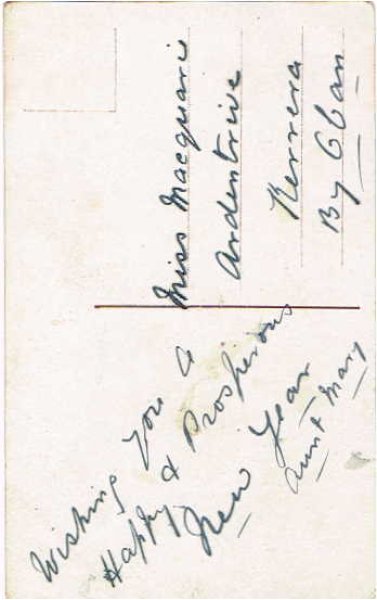 Wishing you a
Happy & Prosperous
New Year
Aunt Mary
Miss Macquarie
Ardentrive
Kerrera
By Oban